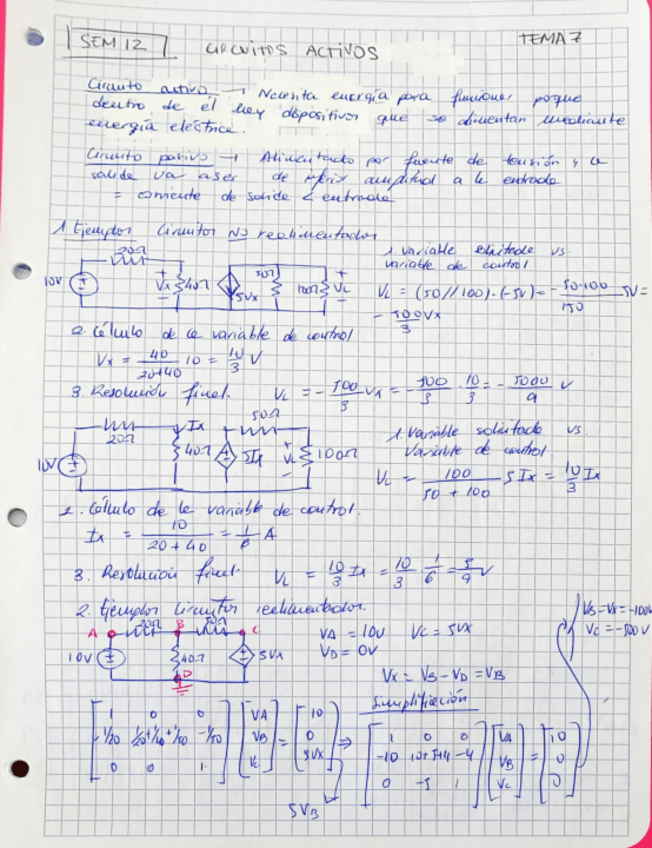 SEM 12
CIRCUITOS ACTIVOS
TEMA 7
Circuito activo → Necesita energía para funcionar porque
dentro de él hay dispositivos que se alimentan mediante
energía eléctrica.
Circuito pasivo → Alimentado por fuente de tensión y la
salida va a ser de amplitud a la entrada
= corriente de salida < entrada
1. Ejemplos Circuitos NO realimentados
10V 20Ω + Vx - 40Ω 5Vx 50Ω 100Ω + VL -
1. Variable solicitada vs.
variable de control
VL = (50//100)·(-5V) = - 50·100/150 5V =
- 500Vx/3
2. Cálculo de la variable de control
Vx = 40/20+40 10 = 10/3 V
3. Resolución final. VL = - 500/3 Vx = - 500/3 · 10/3 = - 5000/9 V
10V 20Ω Ix 40Ω 5Ix 50Ω + VL - 100Ω
1. Variable solicitada vs
Variable de control
VL = 100/50 + 100 5Ix = 10/3 Ix
2. Cálculo de la variable de control.
Ix = 10/20+40 = 1/6 A
3. Resolución final. VL = 10/3 Ix = 10/3 · 1/6 = 5/9 V
2. Ejemplos Circuitos realimentados.
A 20Ω B 50Ω C
10V 40Ω 5Vx
D
VA = 10V VC = 5Vx
VD = 0V
Vx = VB - VD = VB
VB = Vx = -100V
VC = -500V
Simplificación
[1 0 0] [VA] = [10] ⇒ [1 0 0] [VA] = [10]
[-1/20 1/20+1/40+1/50 -1/50] [VB] [0] [-10 10+5+4 -4] [VB] [0]
[0 0 1] [VC] [5Vx] [0 -5 1] [VC] [0]
5VB